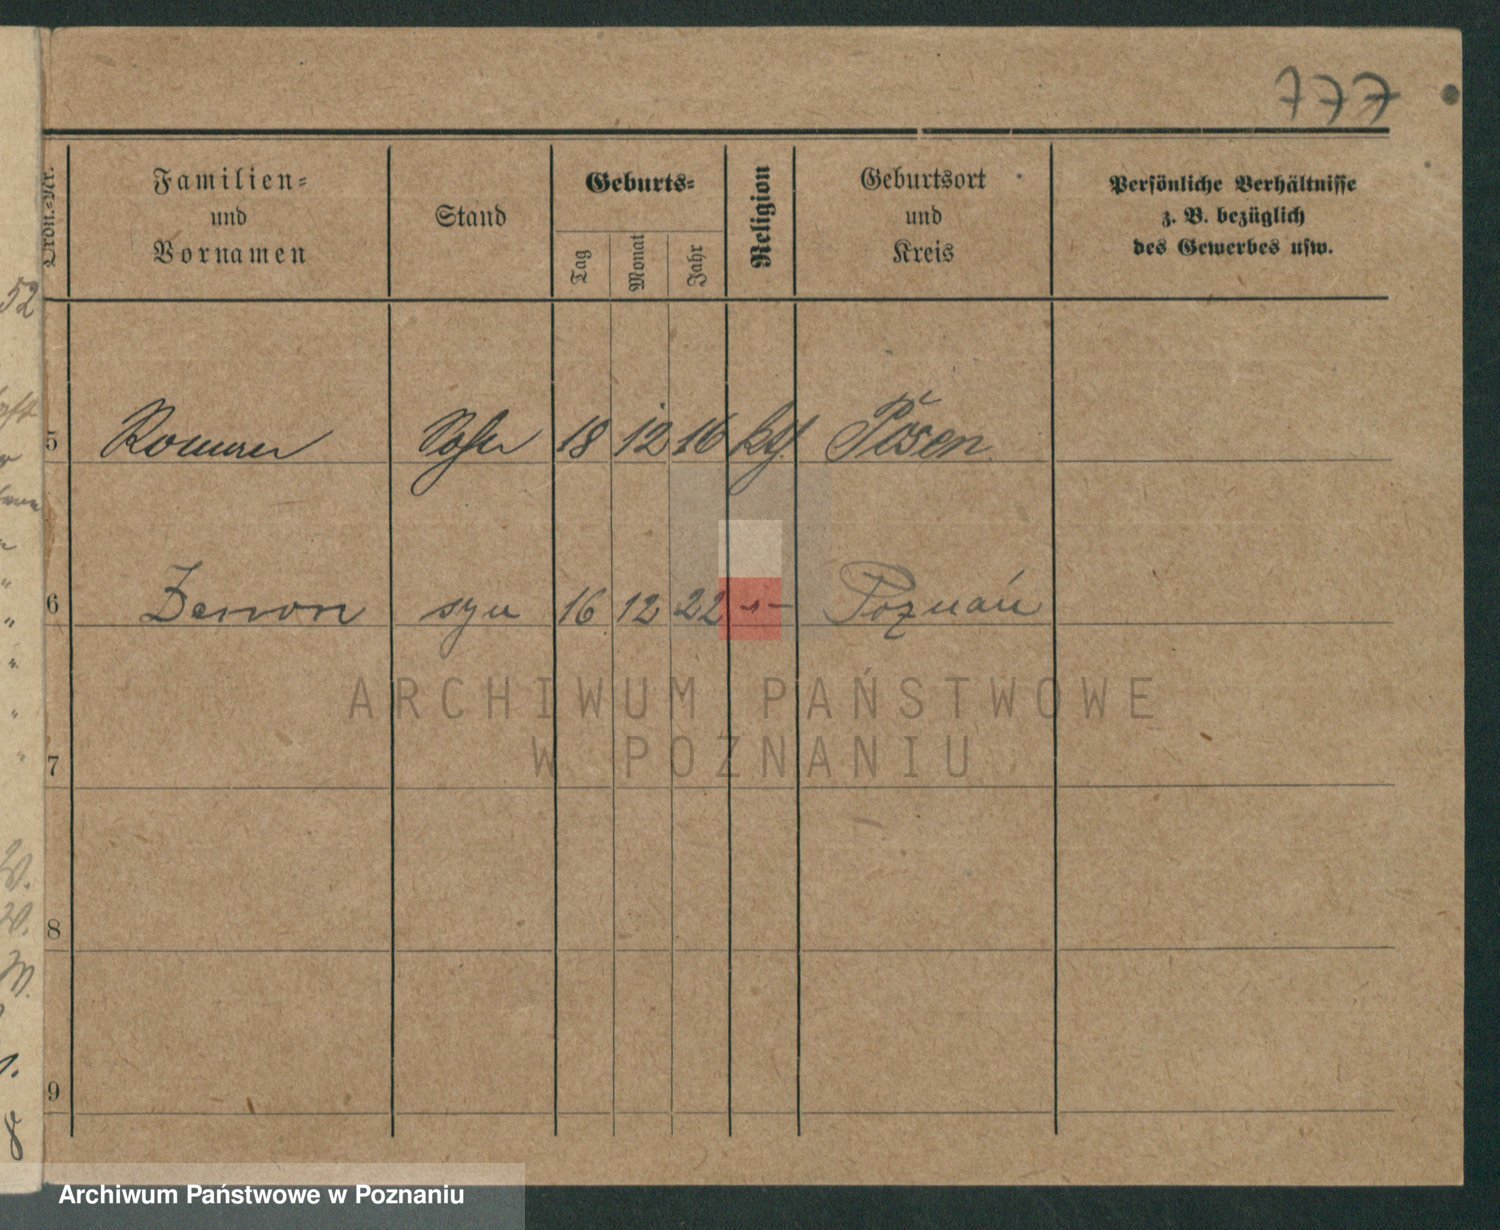 777
Ordn.-Nr.
Familien-
und
Vornamen
Stand
Geburts-
Tag
Monat
Jahr
Religion
Geburtsort
und
Kreis
Persönliche Verhältnisse
z. B. bezüglich
des Gewerbes usw.
52
5 Roman Sohn 18 12 16 kth. Posen
6 Zenon syn 16 12 22 -"- Poznań
ARCHIWUM PAŃSTWOWE
W POZNANIU
7
W.
8
W.
W.
9
8
Archiwum Państwowe w Poznaniu